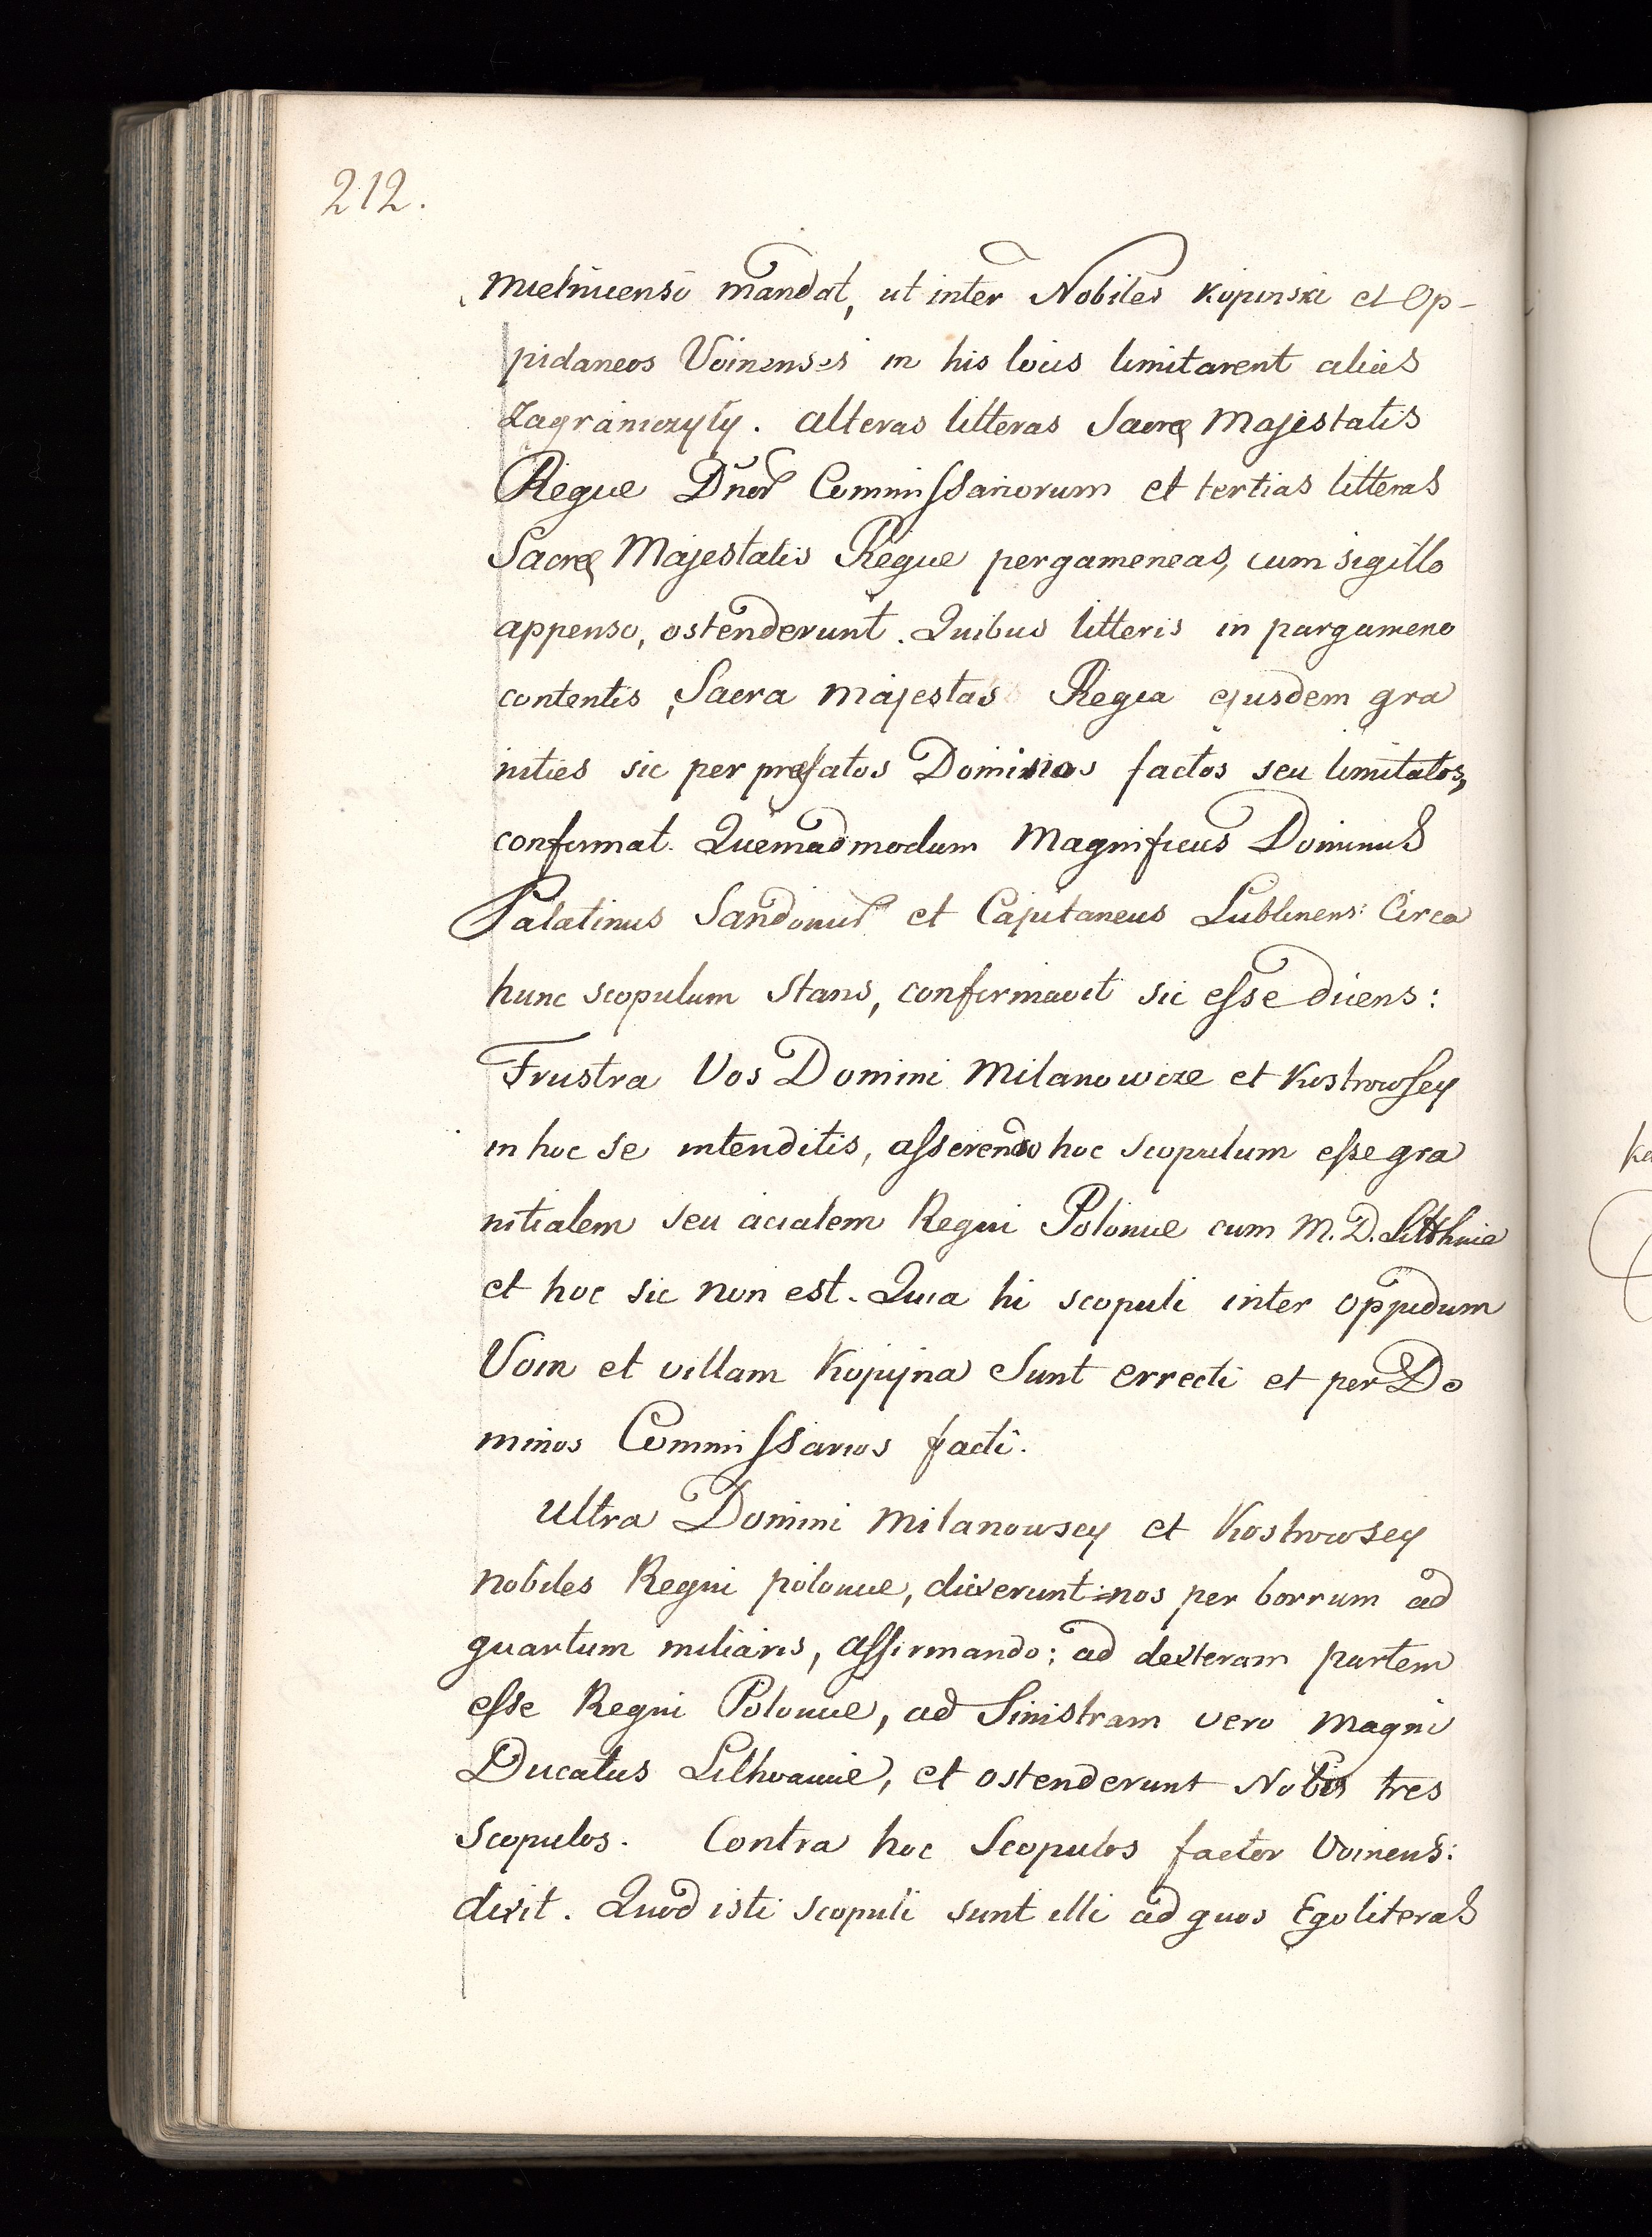 212.
Mielnicensi mandat, ut inter Nobiles Kopinski et Op-
pidaneos Voinenses in his locis limitarent alias
Zagraniczyly. Alteras litteras Sacræ Majestatis
Regiæ Dnor Commissariorum et tertias litteras
Sacræ Majestatis Regiæ pergameneas, cum sigillo
appenso, ostenderunt. Quibus litteris in pargameno
contentis, Sacra Majestas Regia ejusdem gra
nities sic per præfatos Dominos factos seu limitatos,
confirmat. Quemadmodum Magnificus Dominus
Palatinus Sandomir et Capitaneus Lublinens: Circa
hunc scopulum stans, confirmavit sic esse dicens:
Frustra Vos Domini Milanowice et Kostrowscy
in hoc se intenditis, asserendo hoc scopulum esse gra
nitialem seu acialem Regni Poloniæ cum M. D. Litthuie
et hoc sic non est. Quia hi scopuli inter oppidum
Voin et villam Kopijna sunt errecti et per Do
minos Commissarios facti.
Ultra Domini Milanowscy et Kostrowscy
nobiles Regni poloniæ, duxerunt nos per borrum ad
quartum miliaris, affirmando: ad dexteram partem
esse Regni Poloniæ, ad Sinistram vero Magni
Ducatus Lithvaniæ, et ostenderunt Nobis tres
Scopulos. Contra hoc Scopulos factor Voinens:
dixit. Quod isti scopuli sunt illi ad quos Ego literas